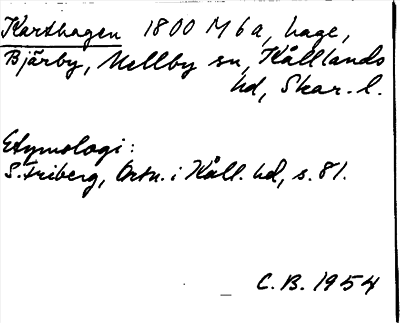 Karthagen 1800 M6a, hage,
Bjärby, Mellby sn, Kållands
hd, Skar. l.
Etymologi:
S. Friberg, Ortn. i Kåll. hd, s. 81.
C. B. 1954